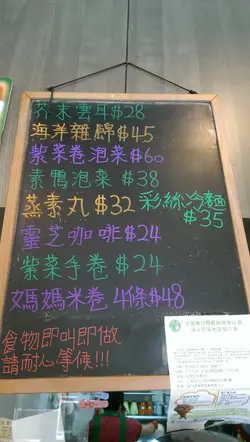 芥末雲耳$28
海洋雜錦$45
紫菜卷泡菜$60
素鴨泡菜$38
蒸素丸$32
彩絲冷麵
$35
靈芝咖啡$24
紫菜手卷$24
媽媽米卷4條$48
食物即叫即做
請耐心等候!!!